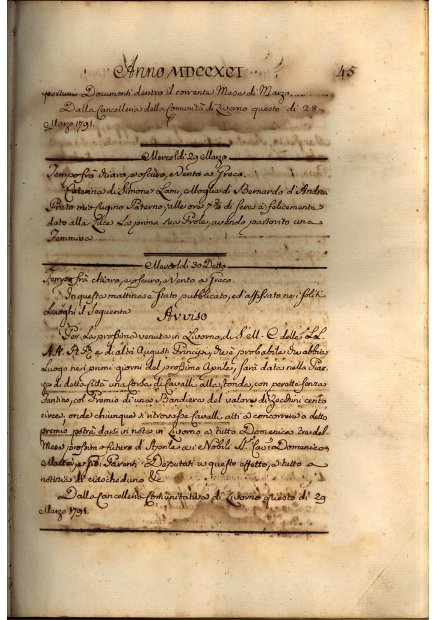 Anno MDCCXCI 45
Documenti dentro il corrente Mese di Marzo.
Dalla Cancelleria della Comunità di Livorno questo dì 28
Marzo 1791.
Mercoldì 29 Marzo
Tempo frà chiaro, e oscuro, e Vento a Greco.
Caterina di Simone Lami, Moglie di Bernardo d'Andrea
Prato mio Cugino Paterno, alle ore 7 3/4 di sera à felicemente
dato alla Luce la prima sua Prole, avendo partorito una
Femmina
Mercoldì 30 Detto
Tempo frà chiaro, e oscuro, e Vento a Greco.
In questa mattina è stato pubblicato, ed affissato nei soliti
Luoghi il seguente
Avviso
Per la prossima venuta in Livorno di S. M. C. delle LL.
AA. RR. e di altri Augusti Principi, che è probabile che abbia
luogo nei primi giorni del prossimo Aprile, sarà data nella Piaz,
za di detta Città una Corsa di Cavalli alla tonda, con perette senza
Fantino, col Premio di una Bandiera del valore di Zecchini cento
circa, onde chiunque à Cavalli atti a concorrere a detto
premio potrà darsi in nota in Livorno a tutto Domenica tre del
Mese prossimo futuro d'Aprile ai Nobili SS. Cav. Domenico
Mattei, e Deputati a questo effetto, e tutto a
notizia di ciascheduno &c.
Dalla Cancelleria Comunitativa di Livorno questo dì 29
Marzo 1791.